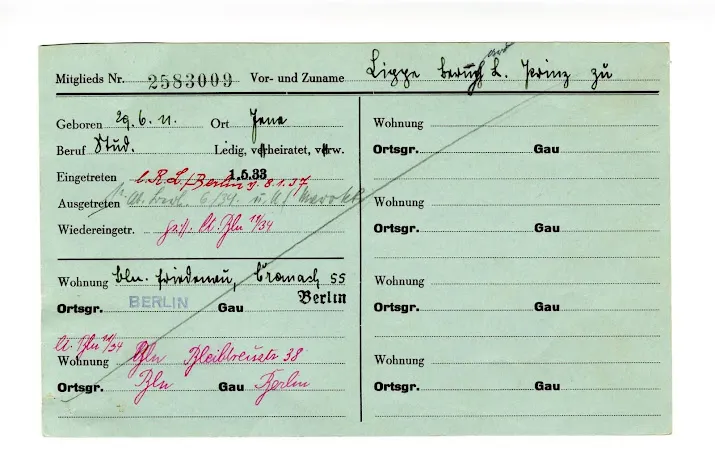 Mitglieds Nr. 2583009 Vor- und Zuname Lippe Prinz zu
Geboren 29.6.11. Ort Jena
Beruf Stud. Ledig, verheiratet, verw.
Eingetreten 1.5.33
l. R.L./Berlin v. 8.1.37
Ausgetreten 6/34. u.
Wiedereingetr. lt. Bln 11/34
Wohnung Bln. Friedenau, 55
Ortsgr. BERLIN Gau Berlin
lt. Bln 11/34
Wohnung Bln Bleibtreustr 38
Ortsgr. Bln Gau Berlin
Wohnung
Ortsgr. Gau
Wohnung
Ortsgr. Gau
Wohnung
Ortsgr. Gau
Wohnung
Ortsgr. Gau